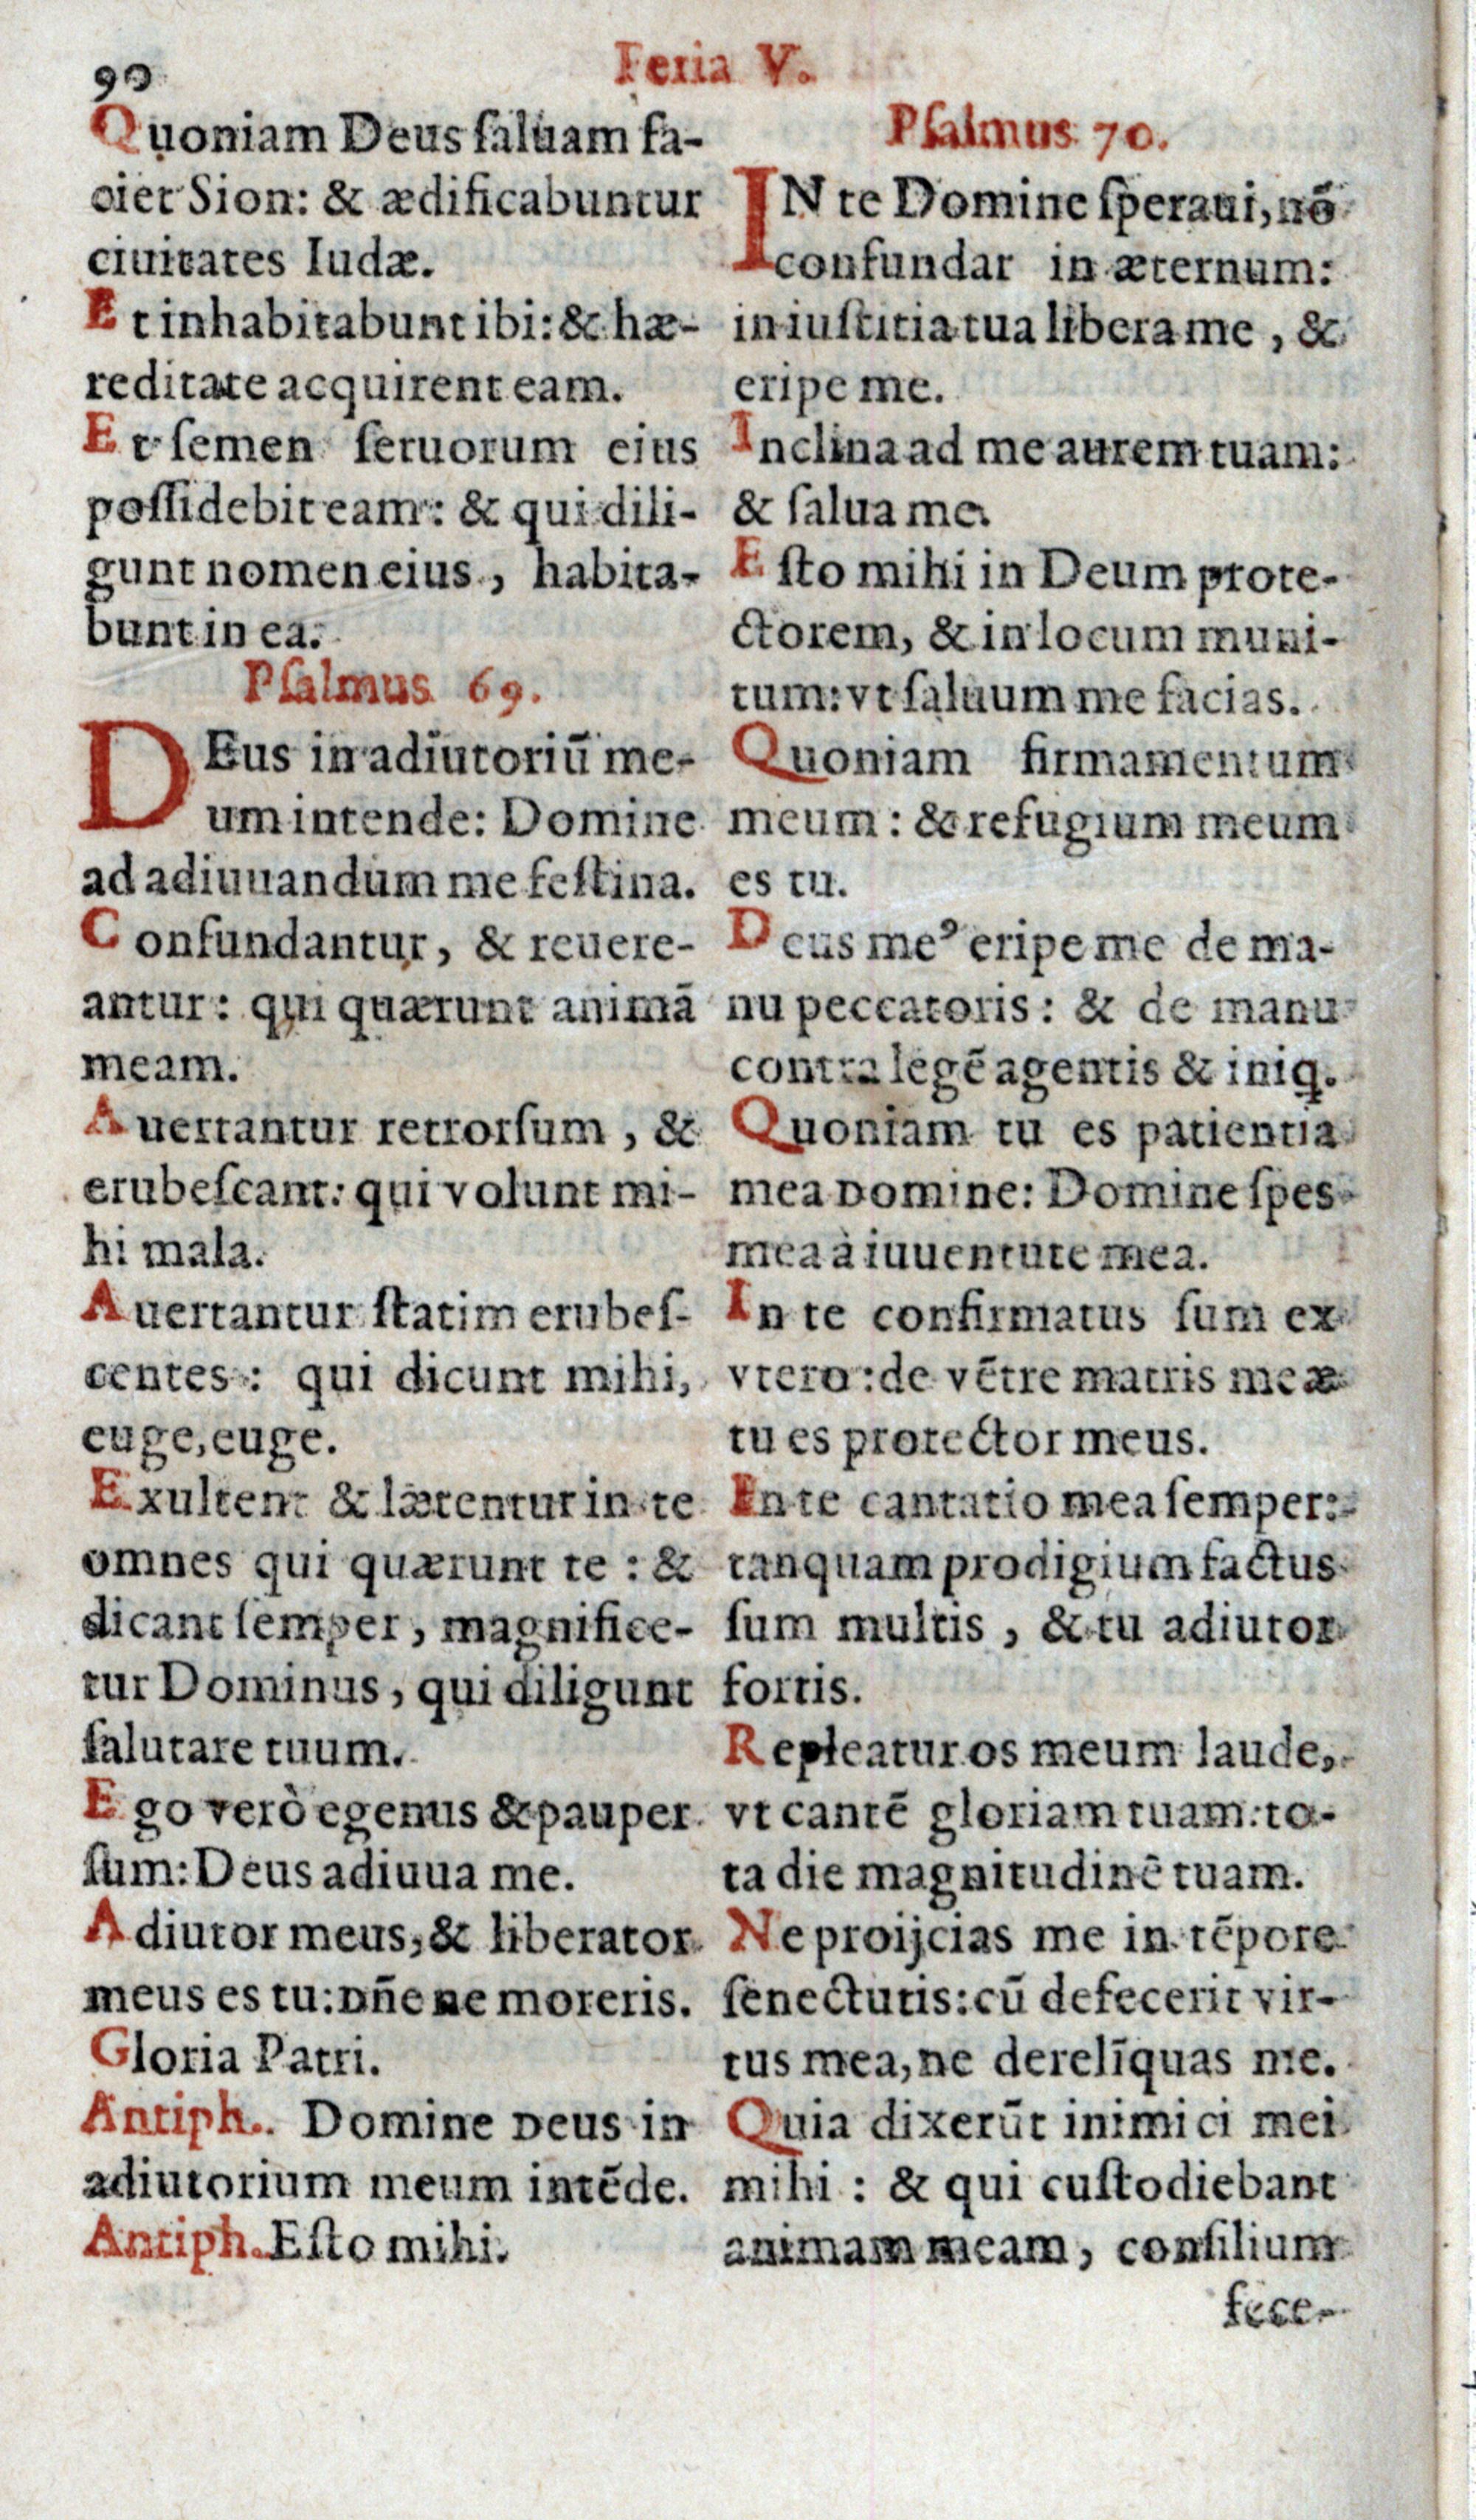 90
Feria V.
Quoniam Deus ſaluam fa-
ciet Sion: & ædificabuntur
ciuitates Iudæ.
Et inhabitabunt ibi: & hæ-
reditate acquirent eam.
Et ſemen ſeruorum eius
poſſidebit eam: & qui dili-
gunt nomen eius, habita-
bunt in ea.
Pſalmus 69.
DEus in adiutoriũ me-
um intende: Domine
ad adiuuandum me feſtina.
Confundantur, & reuere-
antur: qui quærunt animã
meam.
Auertantur retrorſum, &
erubeſcant: qui volunt mi-
hi mala.
Auertantur ſtatim erubeſ-
centes: qui dicunt mihi,
euge, euge.
Exultent & lætentur in te
omnes qui quærunt te: &
dicant ſemper, magnifice-
tur Dominus, qui diligunt
ſalutare tuum.
Ego verò egenus & pauper
ſum: Deus adiuua me.
Adiutor meus, & liberator
meus es tu: Dñe ne moreris.
Gloria Patri.
Antiph. Domine Deus in
adiutorium meum intẽde.
Antiph. Eſto mihi.
Pſalmus 70.
IN te Domine ſperaui, nõ
confundar in æternum:
in iuſtitia tua libera me, &
eripe me.
Inclina ad me aurem tuam:
& ſalua me.
Eſto mihi in Deum prote-
ctorem, & in locum muni-
tum: vt ſaluum me facias.
Quoniam firmamentum
meum: & refugium meum
es tu.
Deus meꝰ eripe me de ma-
nu peccatoris: & de manu
contra legẽ agentis & iniq.
Quoniam tu es patientia
mea Domine: Domine ſpes
mea à iuuentute mea.
In te confirmatus ſum ex
vtero: de vẽtre matris meæ
tu es protector meus.
In te cantatio mea ſemper:
tanquam prodigium factus
ſum multis, & tu adiutor
fortis.
Repleatur os meum laude,
vt cantẽ gloriam tuam: to-
ta die magnitudinẽ tuam.
Ne proijcias me in tẽpore
ſenectutis: cũ defecerit vir-
tus mea, ne derelĩquas me.
Quia dixerũt inimici mei
mihi: & qui cuſtodiebant
animam meam, conſilium
fece-